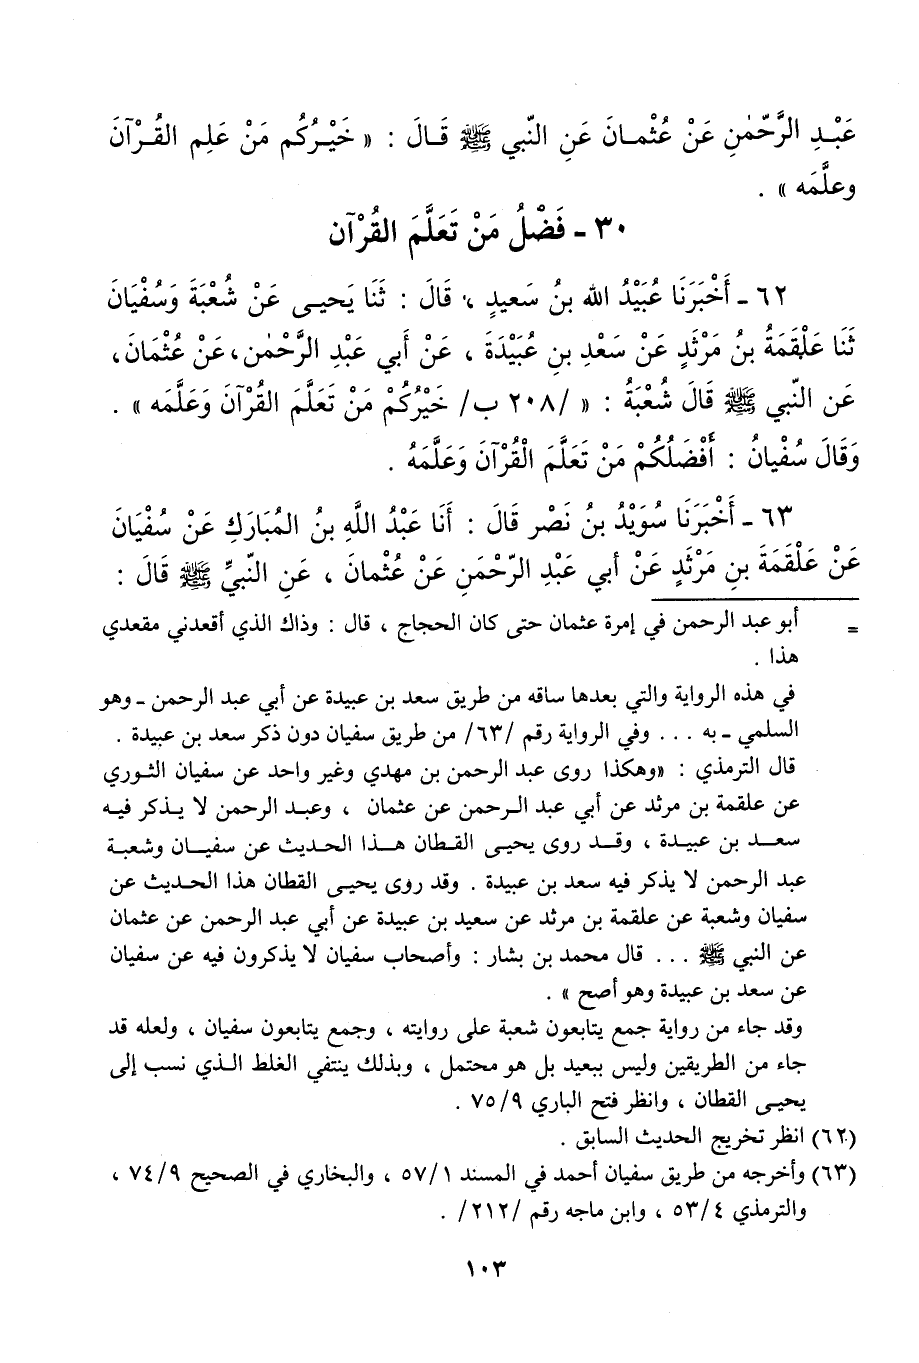 عَبْـدِ الرَّحْمٰنِ عَنْ عُثْمـانَ عَنِ النّبي ﷺ قَـالَ : « خَيْـرُكُم مَنْ عَلِم القُـرْآنَ
وعلَّمَه » .
٣٠ - فَضْلُ مَنْ تَعَلَّمَ القُرْآن
٦٢ - أَخْبَرَنَا عُبَيْدُ الله بنُ سَعيدٍ ، قَالَ : ثَنَا يَحيـى عَنْ شُعْبَةَ وَسُفْيَان
ثَنَا عَلْقَمَةُ بنُ مَرْثَدٍ عَنْ سَعْدِ بنِ عُبَيْدَةَ ، عَنْ أَبي عَبْدِ الرَّحْمٰن، عَنْ عُثْمانَ،
عَن النّبي ﷺ قَالَ شُعْبَةُ : « /٢٠٨ ب/ خَيْرُكُمْ مَنْ تَعَلَّمَ القُرْآنَ وَعَلَّمَه » .
وَقَالَ سُفْيانُ : أَفْضَلُكُمْ مَنْ تَعَلَّمَ الْقُرْآنَ وَعَلَّمَهُ .
٦٣ - أَخْبَرَنَا سُوَيْدُ بنُ نَصْر قَالَ : أَنَا عَبْدُ اللَّهِ بنُ المُبَارَكِ عَنْ سُفْيَانَ
عَنْ عَلْقَمَةَ بنِ مَرْثَدٍ عَنْ أبي عَبْدِ الرّحْمَنِ عَنْ عُثْمانَ ، عَنِ النّبيِّ ﷺ قَالَ :
= أبو عبد الرحمن في إمرة عثمان حتى كان الحجاج ، قال : وذاك الذي أقعدني مقعدي
هذا .
في هذه الرواية والتي بعدها ساقه من طريق سعد بن عبيدة عن أبي عبد الرحمن - وهو
السلمي - به ... وفي الرواية رقم /٦٣/ من طريق سفيان دون ذكر سعد بن عبيدة .
قال الترمذي : «وهكذا روى عبد الرحمن بن مهدي وغير واحد عن سفيان الثوري
عن علقمة بن مرثد عن أبي عبد الـرحمن عن عثمان ، وعبـد الرحمن لا يـذكر فيـه
سعـد بن عبيدة ، وقـد روى يحيـى القطان هـذا الحديث عن سفيـان وشعبـة
عبد الرحمن لا يذكر فيه سعد بن عبيدة . وقد روى يحيـى القطان هذا الحديث عن
سفيان وشعبة عن علقمة بن مرثد عن سعيد بن عبيدة عن أبي عبد الرحمن عن عثمان
عن النبي ﷺ ... قال محمد بن بشار : وأصحاب سفيان لا يذكرون فيه عن سفيان
عن سعد بن عبيدة وهو أصح » .
وقد جاء من رواية جمع يتابعون شعبة على روايته ، وجمع يتابعون سفيان ، ولعله قد
جاء من الطريقين وليس ببعيد بل هو محتمل ، وبذلك ينتفي الغلط الـذي نسب إلى
يحيـى القطان ، وانظر فتح الباري ٧٥/٩ .
(٦٢) انظر تخريج الحديث السابق .
(٦٣) وأخرجه من طريق سفيان أحمد في المسند ٥٧/١ ، والبخاري في الصحيح ٧٤/٩ ،
والترمذي ٥٣/٤ ، وابن ماجه رقم /٢١٢/ .
١٠٣